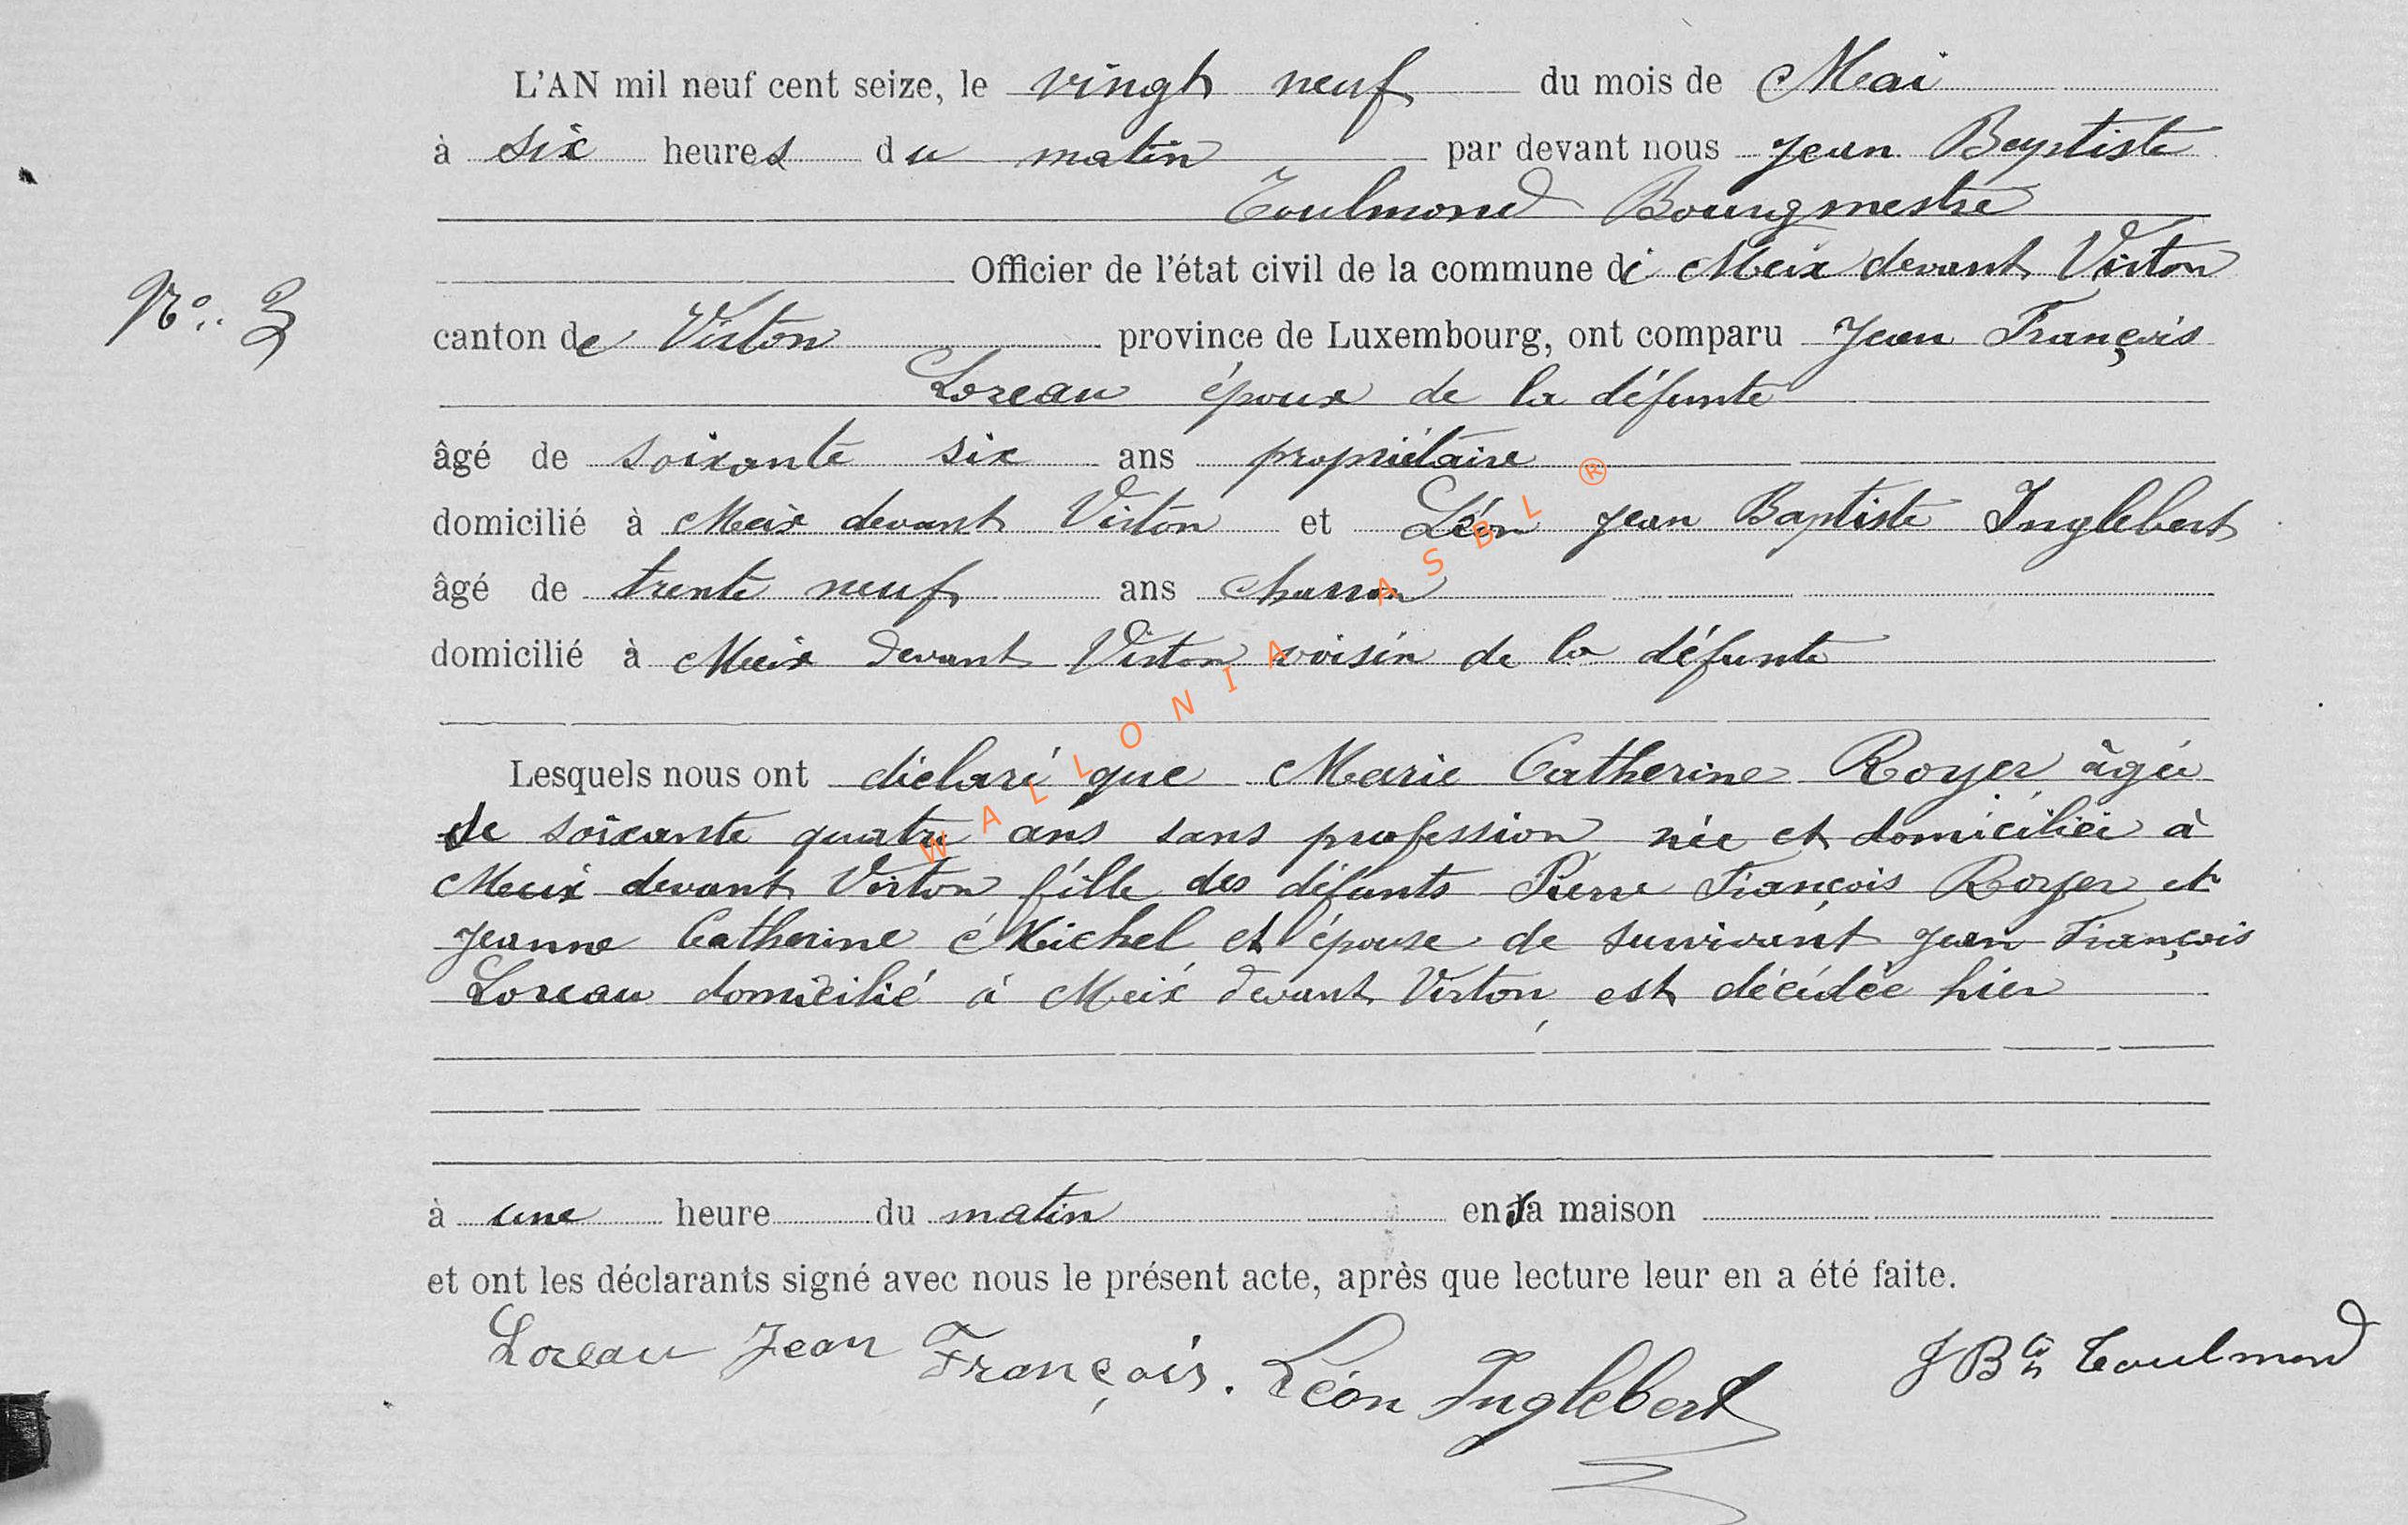 L'AN mil neuf cent seize, le vingt neuf du mois de Mai
à six heures du matin par devant nous Jean Baptiste
Toulmond Bourgmestre
Officier de l'état civil de la commune de Meix devant Virton
N°.. 3
canton de Virton province de Luxembourg, ont comparu Jean François
Loreau époux de la défunte
âgé de soixante six ans propriétaire
domicilié à Meix devant Virton et Léon Jean Baptiste Inglebert
âgé de trente neuf ans charron
domicilié à Meix devant Virton voisin de la défunte
Lesquels nous ont déclaré que Marie Catherine Royer âgée
de soixante quatre ans sans profession née et domiciliée à
Meix devant Virton fille des défunts Pierre François Royer et
Jeanne Catherine Michel et épouse de survivant Jean François
Loreau domicilié à Meix devant Virton, est décédée hier
à une heure du matin en sa maison
et ont les déclarants signé avec nous le présent acte, après que lecture leur en a été faite.
Loreau Jean François. Léon Inglebert J Bte Toulmond
WALLONIA ASBL ®